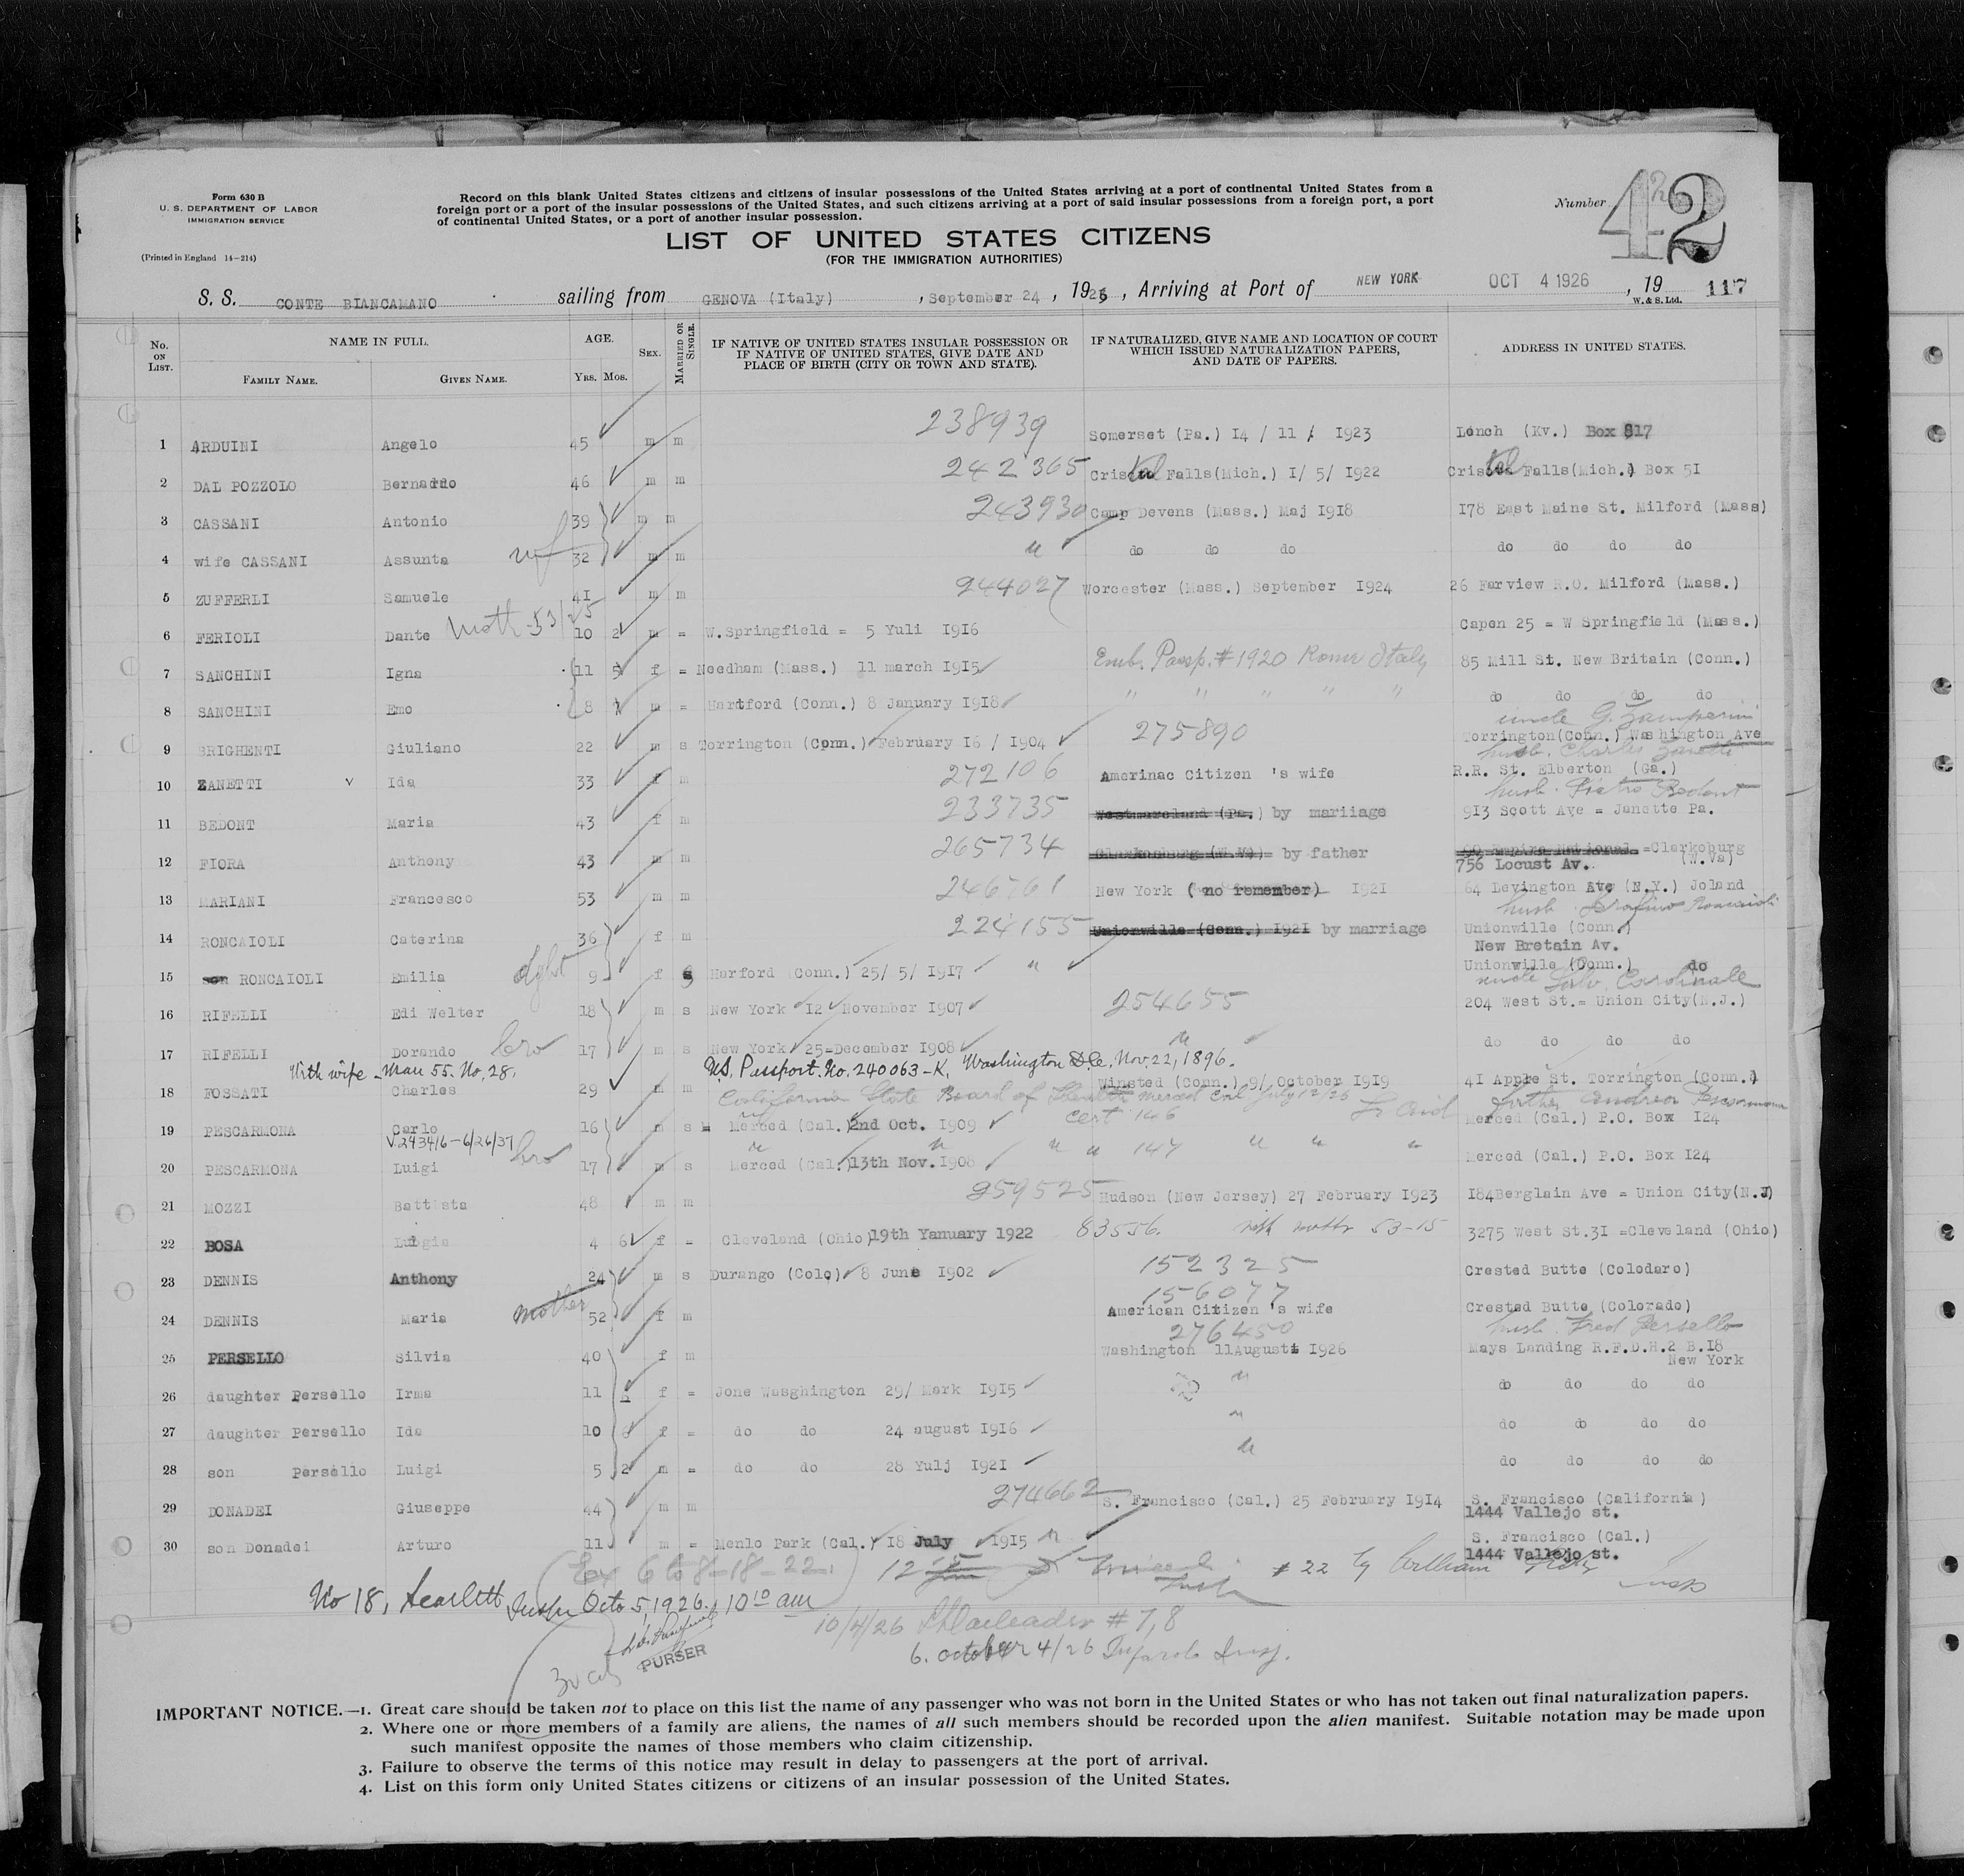 Form 630 B
U. S. DEPARTMENT OF LABOR
IMMIGRATION SERVICE
(Printed in England 14—214)
Record on this blank United States citizens and citizens of insular possessions of the United States arriving at a port of continental United States from a
foreign port or a port of the insular possessions of the United States, and such citizens arriving at a port of said insular possessions from a foreign port, a port
of continental United States, or a port of another insular possession.
Number 42
LIST OF UNITED STATES CITIZENS
(FOR THE IMMIGRATION AUTHORITIES)
S. S. CONTE BIANCAMANO sailing from GENOVA (Italy) , September 24 , 1926 , Arriving at Port of NEW YORK OCT 4 1926 , 19
W. & S. Ltd. 117
No. ON LIST. NAME IN FULL. FAMILY NAME. GIVEN NAME. AGE. YRS. MOS. SEX. MARRIED OR SINGLE. IF NATIVE OF UNITED STATES INSULAR POSSESSION OR IF NATIVE OF UNITED STATES, GIVE DATE AND PLACE OF BIRTH (CITY OR TOWN AND STATE). IF NATURALIZED, GIVE NAME AND LOCATION OF COURT WHICH ISSUED NATURALIZATION PAPERS, AND DATE OF PAPERS. ADDRESS IN UNITED STATES.
1 ARDUINI Angelo 45 m m 238939 Somerset (Pa.) I4 / 11 / I923 Lench (Kv.) Box 817
2 DAL POZZOLO Bernardo 46 m m 242365 Cristal Falls(Mich.) I/ 5/ I922 Cristal Falls(Mich.) Box 5I
3 CASSANI Antonio 39 m m 243930 Camp Devens (Mass.) Maj I9I8 I78 East Maine St. Milford (Mass)
4 wife CASSANI Assunta wf 32 m m " do do do do do do do
5 ZUFFERLI Samuele 4I m m 244027 Worcester (Mass.) September I924 26 Farview R.O. Milford (Mass.)
6 FERIOLI Dante Moth 53/25 10 2 m = W.Springfield = 5 Yuli I9I6 Capen 25 = W Springfield (Mass.)
7 SANCHINI Igna 11 5 f = Needham (Mass.) 11 march I9I5 Emb. Passp. # 1920 Rome Italy 85 Mill St. New Britain (Conn.)
8 SANCHINI Emo 8 m = Hartford (Conn.) 8 January I9I8 " " " " " do do do do
uncle G. Zamperini
9 BRIGHENTI Giuliano 22 m s Torrington (Conn.) February I6 / I904 275890 Torrington(Conn.) Washington Ave
husb. Charles Zanetti
10 ZANETTI v Ida 33 f m 272106 Amerinac Citizen 's wife R.R. St. Elberton (Ga.)
husb. Pietro Bedont
11 BEDONT Maria 43 f m 233735 Westmoreland (Pa.) by mariiage 913 Scott Ave = Janette Pa.
12 FIORA Anthony 43 m m 265734 Clarksburg (W.Va) by father =Clarksburg (W.Va)
756 Locust Av.
13 MARIANI Francesco 53 m m 246761 New York ( no remember) I92I 64 Levington Ave (N.Y.) Joland
husb. Serafino Roncaioli
14 RONCAIOLI Caterina 36 f m 224155 Unionville (Conn.) I92I by marriage Unionville (Conn.)
New Bretain Av.
15 son RONCAIOLI Emilia dght 9 f s Harford (Conn.) 25/ 5/ I9I7 " Unionville (Conn.) do
uncle Salv. Cardinale
16 RIFELLI Edi Welter 18 m s New York I2 November I907 254655 204 West St.= Union City(N.J.)
17 RIFELLI Dorando bro 17 m s New York 25=December I908 " do do do do
With wife - Man 55. No. 28. U.S. Passport. No. 240063-K, Washington D.C. Nov. 22, 1896.
18 FOSSATI Charles 29 m m Winsted (Conn.) 9/ October I9I9 4I Apple St. Torrington (Conn.)
California State Board of Health Merced Cal July 12/26
19 PESCARMONA Carlo 16 m s Merced (Cal.) 2nd Oct. I909 Cert 146 Merced (Cal.) P.O. Box I24
V.243416-6/26/37 bro
20 PESCARMONA Luigi 17 m s Merced (Cal.) 13th Nov. I908 " " 147 " " " Merced (Cal.) P.O. Box I24
21 MOZZI Battista 48 m m 259525 Hudson (New Jersey) 27 February I923 I84Berglain Ave = Union City(N.J)
22 BOSA Luigia 4 6 f = Cleveland (Ohio)19th Yanuary 1922 83556. with mother 53-15 3275 West St.3I =Cleveland (Ohio)
23 DENNIS Anthony 24 m s Durango (Colo) 8 June I902 152325 Crested Butte (Colodaro)
24 DENNIS Maria mother 52 f m 156077 American Citizen 's wife Crested Butte (Colorado)
husb. Fred Persello
25 PERSELLO Silvia 40 f m 276450 Washington 11August I926 Mays Landing R.F.D.H.2 B.I8
New York
26 daughter Persello Irma 11 f = Jone Wasghington 29/ Mark I9I5 " do do do do
27 daughter Persello Ida 10 f = do do 24 august I9I6 " do do do do
28 son Persello Luigi 5 2 m = do do 28 Yulj I92I " do do do do
29 DONADEI Giuseppe 44 m m 274662 S. Francisco (Cal.) 25 February I9I4 S. Francisco (California)
1444 Vallejo st.
30 son Donadei Arturo 11 m = Menlo Park (Cal.) I8 July I9I5 " S. Francisco (Cal.)
1444 Vallejo st.
(Ex 6 to 8-18-22.)
No 18, Scarlett, Octo 5, 1926. 10 10 am
10/4/26 # 7,8
6. october 4/26 Insp.
PURSER
IMPORTANT NOTICE.—1. Great care should be taken not to place on this list the name of any passenger who was not born in the United States or who has not taken out final naturalization papers.
2. Where one or more members of a family are aliens, the names of all such members should be recorded upon the alien manifest. Suitable notation may be made upon
such manifest opposite the names of those members who claim citizenship.
3. Failure to observe the terms of this notice may result in delay to passengers at the port of arrival.
4. List on this form only United States citizens or citizens of an insular possession of the United States.